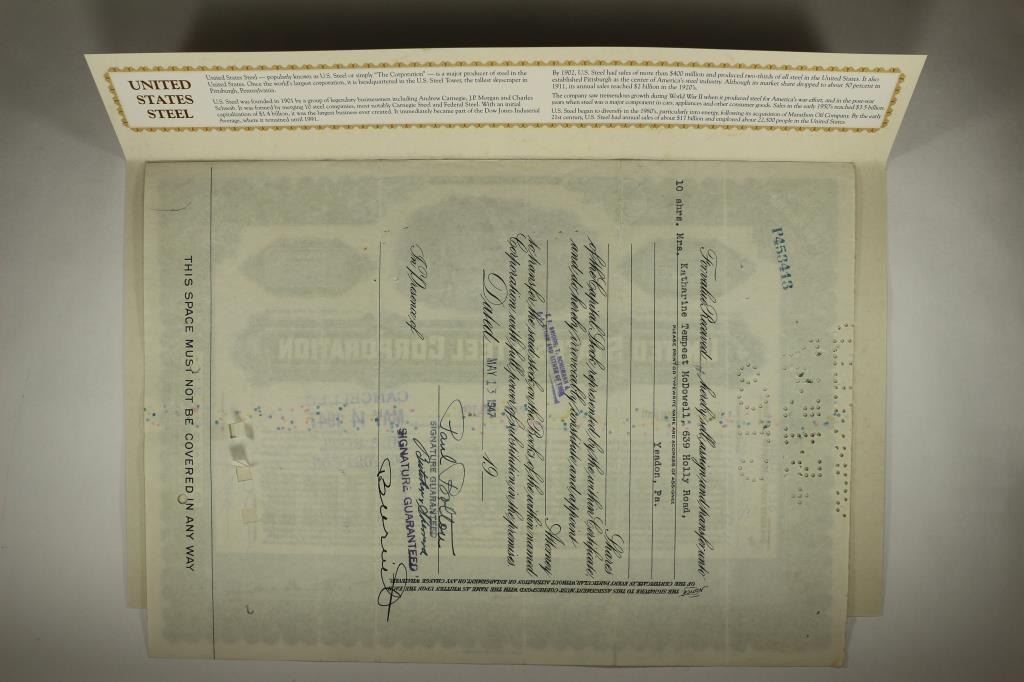 UNITED
STATES
STEEL
United States Steel — popularly known as U.S. Steel or simply "The Corporation" — is a major producer of steel in the
United States. Once the world's largest corporation, it is headquartered in the U.S. Steel Tower, the tallest skyscraper in
Pittsburgh, Pennsylvania.
U.S. Steel was founded in 1901 by a group of legendary businessmen including Andrew Carnegie, J.P. Morgan and Charles
Schwab. It was formed by merging 10 steel companies, most notably Carnegie Steel and Federal Steel. With an initial
capitalization of $1.4 billion, it was the largest business ever created. It immediately became part of the Dow Jones Industrial
Average, where it remained until 1991.
By 1902, U.S. Steel had sales of more than $400 million and produced two-thirds of all steel in the United States. It also
established Pittsburgh as the center of America's steel industry. Although its market share dropped to about 50 percent in
1911, its annual sales reached $2 billion in the 1920's.
The company saw tremendous growth during World War II when it produced steel for America's war effort, and in the post-war
years when steel was a major component in cars, appliances and other consumer goods. Sales in the early 1950's reached $3.5 billion.
U.S. Steel began to diversify in the 1980's, particularly into energy, following its acquisition of Marathon Oil Company. By the early
21st century, U.S. Steel had annual sales of about $17 billion and employed about 22,500 people in the United States.
P453413
For value Received hereby sell, assign and transfer unto
10 shrs. Mrs. Katharine Tempest McDowell, 639 Holly Road,
PLEASE PRINT OR TYPEWRITE NAME AND ADDRESS OF ASSIGNEE
Yeadon, Pa.
Shares
of the Capital Stock represented by the within Certificate,
and do hereby irrevocably constitute and appoint
Attorney
to transfer the said stock on the Books of the within named
Corporation with full power of substitution in the premises
Dated MAY 13 1947 19
In Presence of
Paul
SIGNATURE GUARANTEED
SIGNATURE GUARANTEED
NOTICE
THE SIGNATURE TO THIS ASSIGNMENT MUST CORRESPOND WITH THE NAME AS WRITTEN UPON THE FACE
OF THE CERTIFICATE IN EVERY PARTICULAR WITHOUT ALTERATION OR ENLARGEMENT OR ANY CHANGE WHATEVER.
THIS SPACE MUST NOT BE COVERED IN ANY WAY